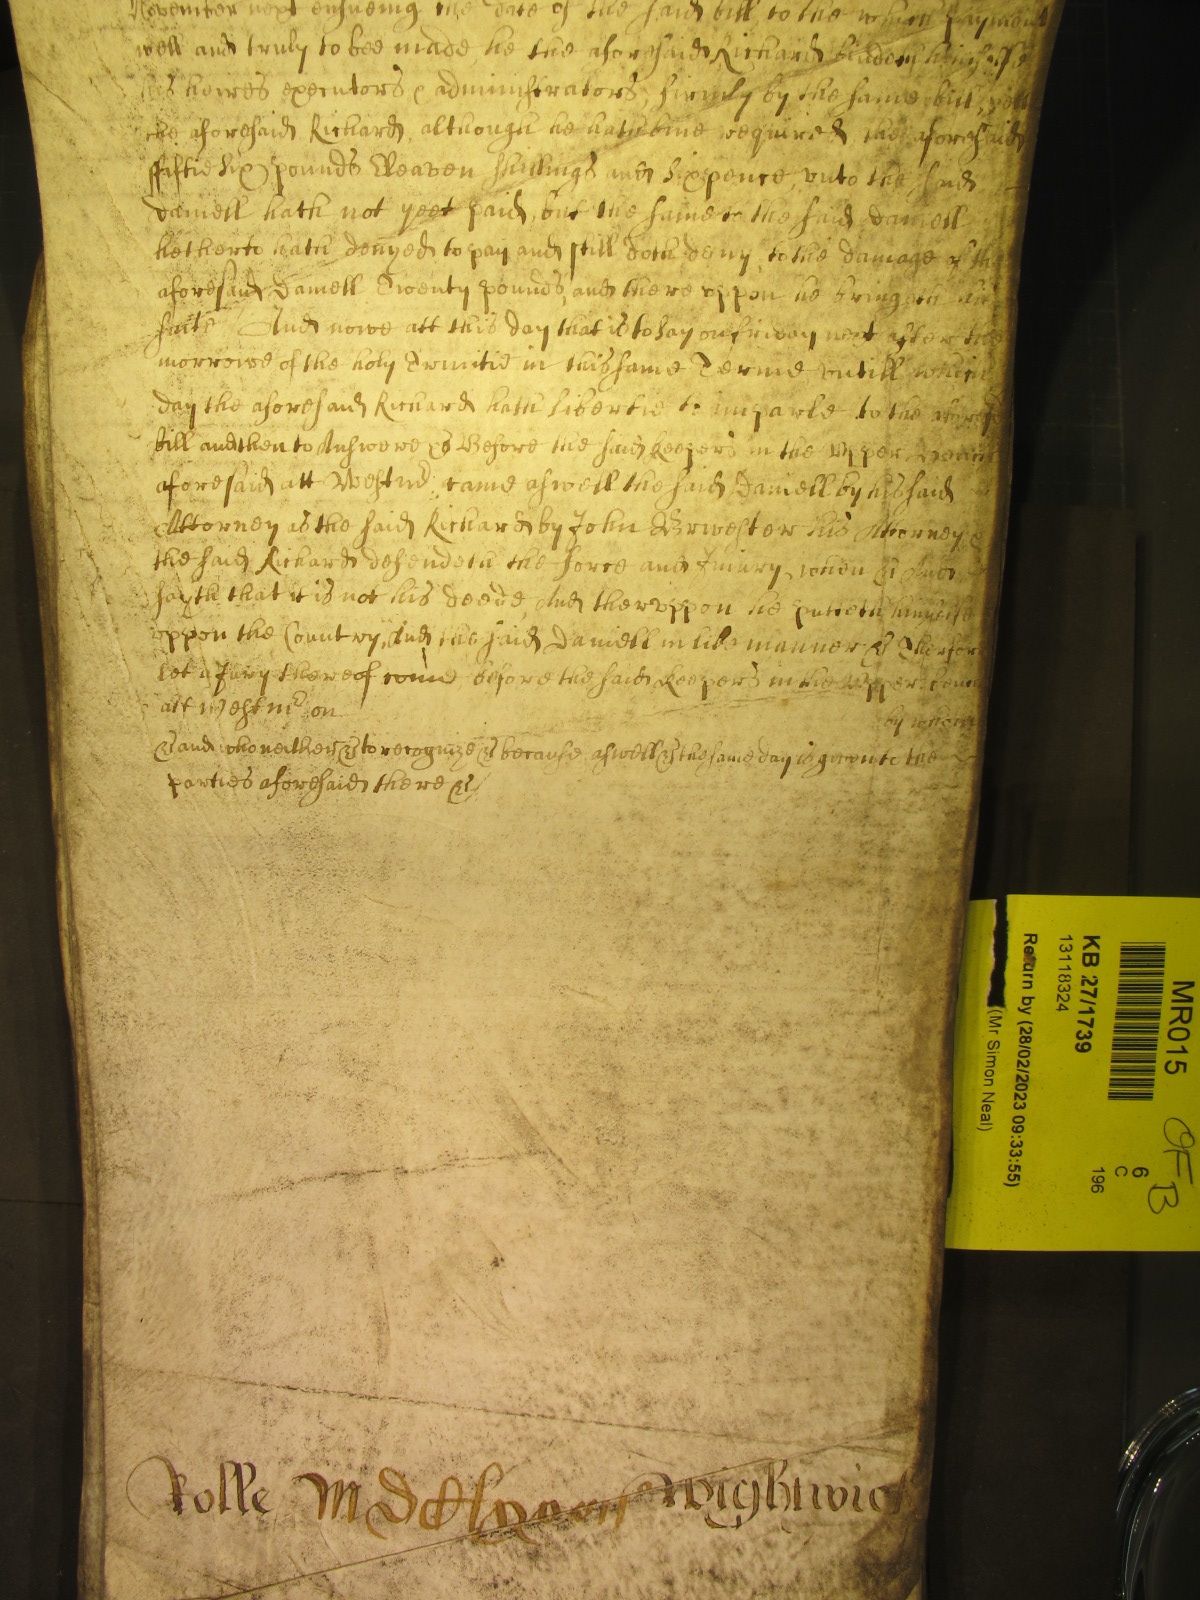 November next ensueing the date of the said bill to the which payment
well and truly to bee made he the aforesaid Richard bindeth himselfe
his heires executors & administrators firmly by the same bill yett
the aforesaid Richard although he hath bine required the aforesaid
ffiftie six pounds Eleaven shillings and sixpence unto the said
Daniell hath not yeet paid, but the same to the said Daniell
hetherto hath denyed to pay and still doth deny to the damage of the
aforesaid Daniell Twenty pounds, and there uppon he bringeth his
suite And nowe att this day that is to say on friday next after the
morrowe of the holy Trinitie in this same Terme untill which
day the aforesaid Richard hath libertie to imparle to the aforesd
bill and then to Answere &c Before the said keepers in the upper bench
aforesaid att Westmr came aswell the said Daniell by his said
Attorney as the said Richard by John his Attorney &
the said Richard defendeth the force and Iniury when &c And
sayth that it is not his deede And theruppon he putteth himselfe
uppon the Country, And the said Daniell in like manner &c Therfore
let a Jury thereof come before the said keepers in the upper bench
att Westmr on by whom
&c and who neither &c to recognize &c because aswell &c the same day is given to the
parties aforesaid there &c
Rolle Wightwick
MR015
KB 27/1739
13118324
Return by (28/02/2023 09:33:55)
(Mr Simon Neal)
OFB
6
C
196